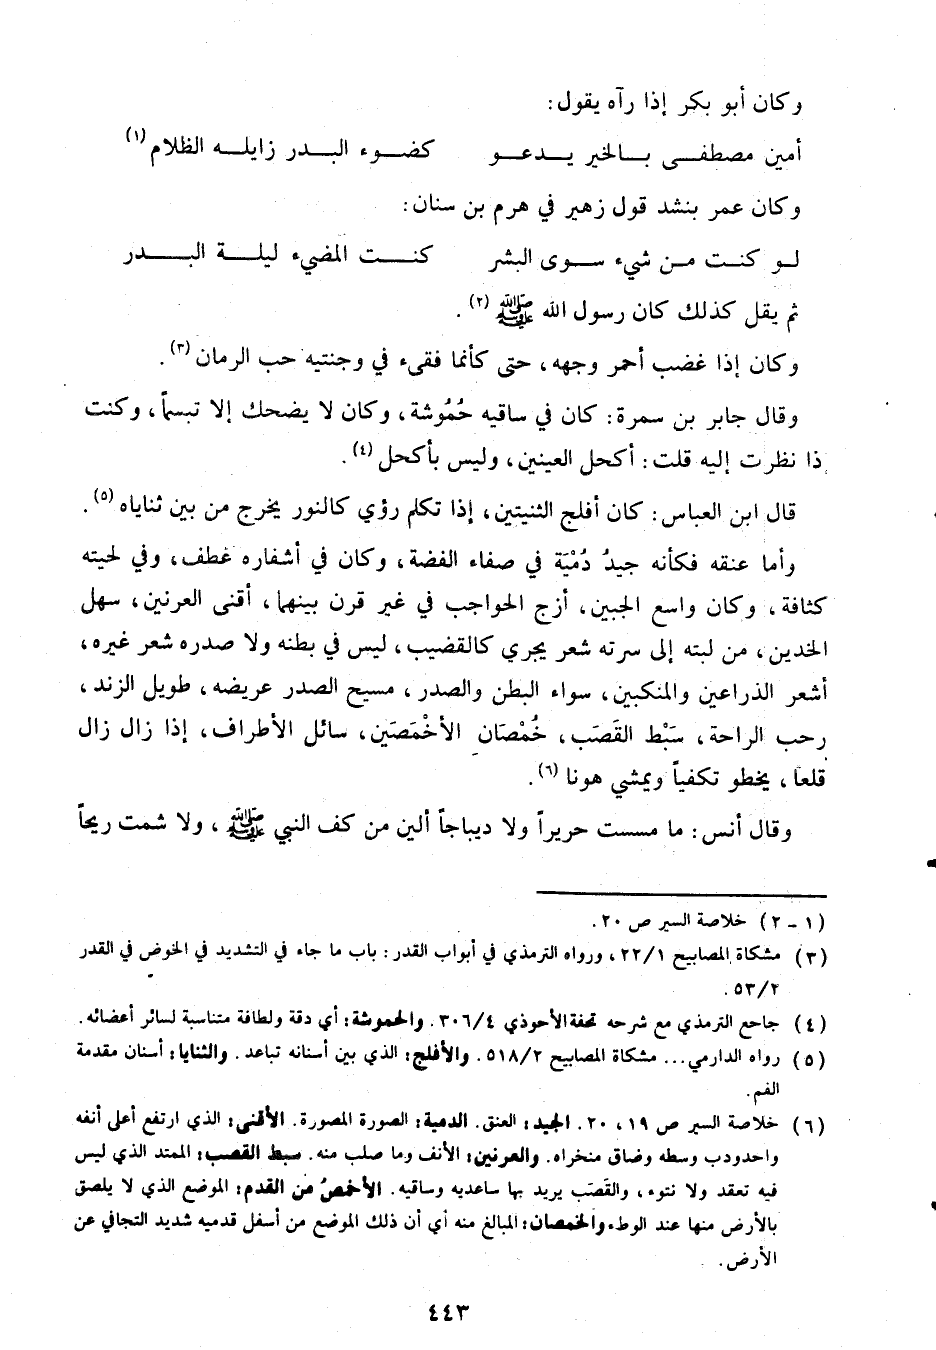 وكان أبو بكر إذا رآه يقول:
أمين مصطفى بالخير يدعو كضوء البدر زايله الظلام(١)
وكان عمر بنشد قول زهير في هرم بن سنان:
لو كنت من شيء سوى البشر كنت المضيء ليلة البدر
ثم يقل كذلك كان رسول الله ﷺ (٢).
وكان إذا غضب أحمر وجهه، حتى كأنما فقىء في وجنتيه حب الرمان(٣).
وقال جابر بن سمرة: كان في ساقيه حُمُوشة، وكان لا يضحك إلا تبسماً، وكنت
ذا نظرت إليه قلت: أكحل العينين، وليس بأكحل(٤).
قال ابن العباس: كان أفلج الثنيتين، إذا تكلم رؤي كالنور يخرج من بين ثناياه(٥).
وأما عنقه فكأنه جيدُ دُمْيَة في صفاء الفضة، وكان في أشفاره غطف، وفي لحيته
كثافة، وكان واسع الجبين، أزج الحواجب في غير قرن بينهما، أقنى العرنين، سهل
الخدين، من لبته إلى سرته شعر يجري كالقضيب، ليس في بطنه ولا صدره شعر غيره،
أشعر الذراعين والمنكبين، سواء البطن والصدر، مسيح الصدر عريضه، طويل الزند،
رحب الراحة، سَبْط القَصَب، خُمْصَان الأخْمَصَين، سائل الأطراف، إذا زال زال
قلعاً، يخطو تكفياً ويمشي هونا(٦).
وقال أنس: ما مسست حريراً ولا ديباجاً ألين من كف النبي ﷺ، ولا شمت ريحاً
(١ - ٢) خلاصة السير ص ٢٠.
(٣) مشكاة المصابيح ٢٢/١، ورواه الترمذي في أبواب القدر: باب ما جاء في التشديد في الخوض في القدر
٥٣/٢.
(٤) جامع الترمذي مع شرحه تحفة الأحوذي ٣٠٦/٤. والحموشة: أي دقة ولطافة متناسبة لسائر أعضائه.
(٥) رواه الدارمي... مشكاة المصابيح ٥١٨/٢. والأفلج: الذي بين أسنانه تباعد. والثنايا: أسنان مقدمة
الفم.
(٦) خلاصة السير ص ١٩، ٢٠. الجيد: العنق. الدمية: الصورة المصورة. الأقنى: الذي ارتفع أعلى أنفه
واحدودب وسطه وضاق منخراه. والعرنين: الأنف وما صلب منه. سبط القصب: الممتد الذي ليس
فيه تعقد ولا نتوء، والقَصَب يريد بها ساعديه وساقيه. الأخمصُ من القدم: الموضع الذي لا يلصق
بالأرض منها عند الوطء والخمصان: المبالغ منه أي أن ذلك الموضع من أسفل قدميه شديد التجافي عن
الأرض.
٤٤٣